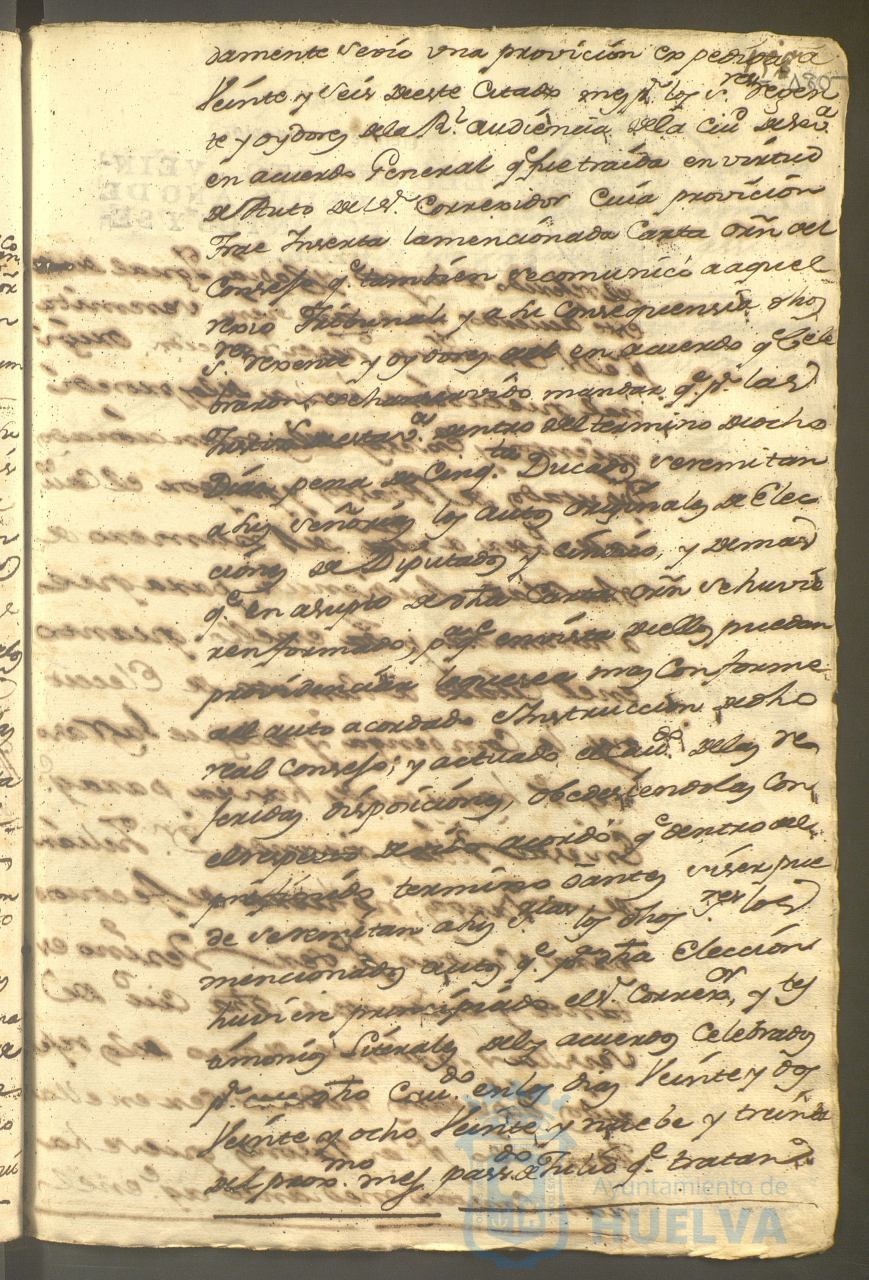 damente se vio una provición expedida a
Veinte y seis de este Citado mes pr. los Sres. Regen
te y oydores de la Rl. audiencia de la Ciud. de Seva.
en acuerdo General qe. fue traida en virtud
de Auto de el Sr. Corregidor Cuia provición
Trae Inserta la mencionada Carta Orn del
Consejo qe. también se comunicó a aquel
regio Tribunal y a su Consequensia dhos
Sres. regente y oydores en acuerdo qe. Cele
braron, se han servido mandar qe. pr. las
Justicias de esta va. dentro del termino de ocho
Dias pena de Cinqta. Ducados se remitan
a sus señorias los autos originales de Elec
ciónes de Diputados y síndico, y demas
qe. en asumpto de dha Carta Orn se huvie
ren formado, pa. qe. en vista de ellos puedan
providenciar lo que sea mas Conforme
al auto acordado e Instrucción de dho
real Consejo; y actuado el Cavdo. de las re
feridas dispociciónes, obedesiendolas Con
el respecto devido acordó qe. dentro del
prefinido termino o antes si ser pue
de se remitan a sus Srias los dhos Sres. los
mencionados autos qe. pa. dha Elección
huviere principiado el Sr. Corregor, y tes
timonios Literales de los acuerdos Celebrados
pr. este dho Cavdo. en los dias Veinte y dos
Veinte y ocho Veinte y nuebe y treinta
del proxmo. mes pasado de Julio qe. tratan
Ayuntamiento de
HUELVA